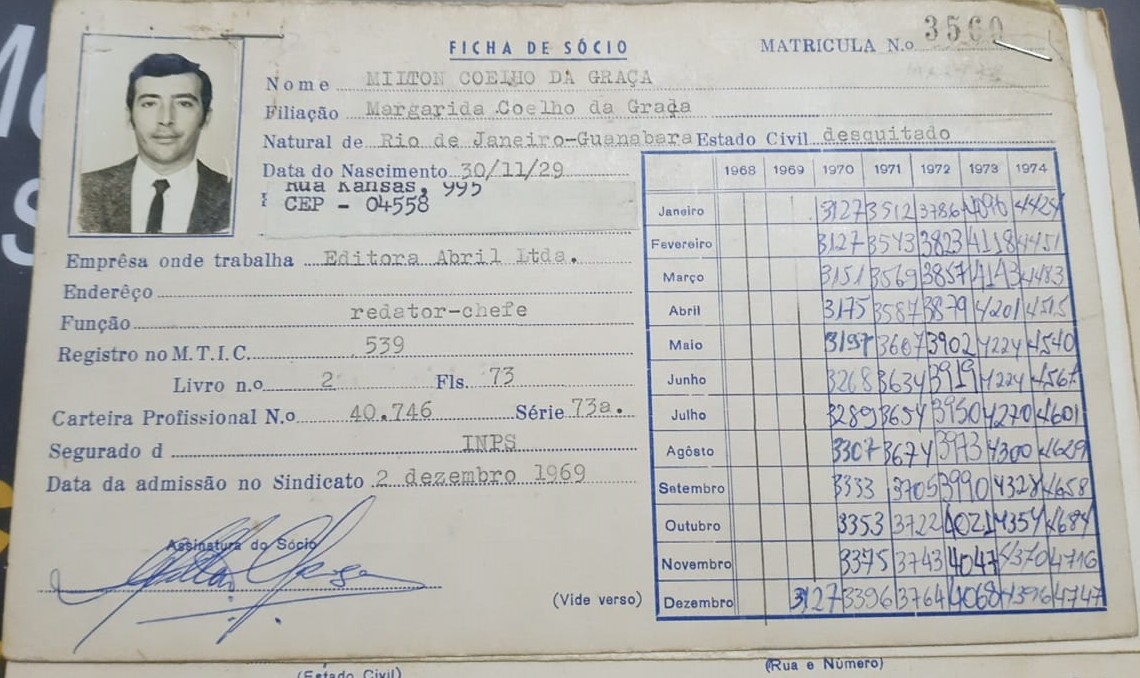 FICHA DE SÓCIO
MATRICULA N.o 3560
Nome MILTON COELHO DA GRAÇA
Filiação Margarida Coelho da Graça
Natural de Rio de Janeiro-Guanabara Estado Civil desquitado
Data do Nascimento 30/11/29
Rua Kansas, 995
CEP - 04558
Emprêsa onde trabalha Editora Abril Ltda.
Enderêço
Função redator-chefe
Registro no M.T.I.C. 539
Livro n.o 2 Fls. 73
Carteira Profissional N.o 40.746 Série 73a.
Segurado d INPS
Data da admissão no Sindicato 2 dezembro 1969
Assinatura do Sócio
(Vide verso)
1968 1969 1970 1971 1972 1973 1974
Janeiro 3127 3512 3786 4090 4424
Fevereiro 3127 3543 3823 4118 4451
Março 3151 3569 3857 4143 4483
Abril 3175 3587 3879 4201 4515
Maio 3197 3607 3902 4224 4540
Junho 3268 3634 3919 4224 4567
Julho 3289 3654 3950 4270 4601
Agôsto 3307 3674 3973 4300 4629
Setembro 3333 3705 3990 4328 4658
Outubro 3353 3722 4021 4354 4684
Novembro 3375 3743 4047 4370 4716
Dezembro 3127 3396 3764 4068 4396 4747
(Estado Civil)
(Rua e Número)